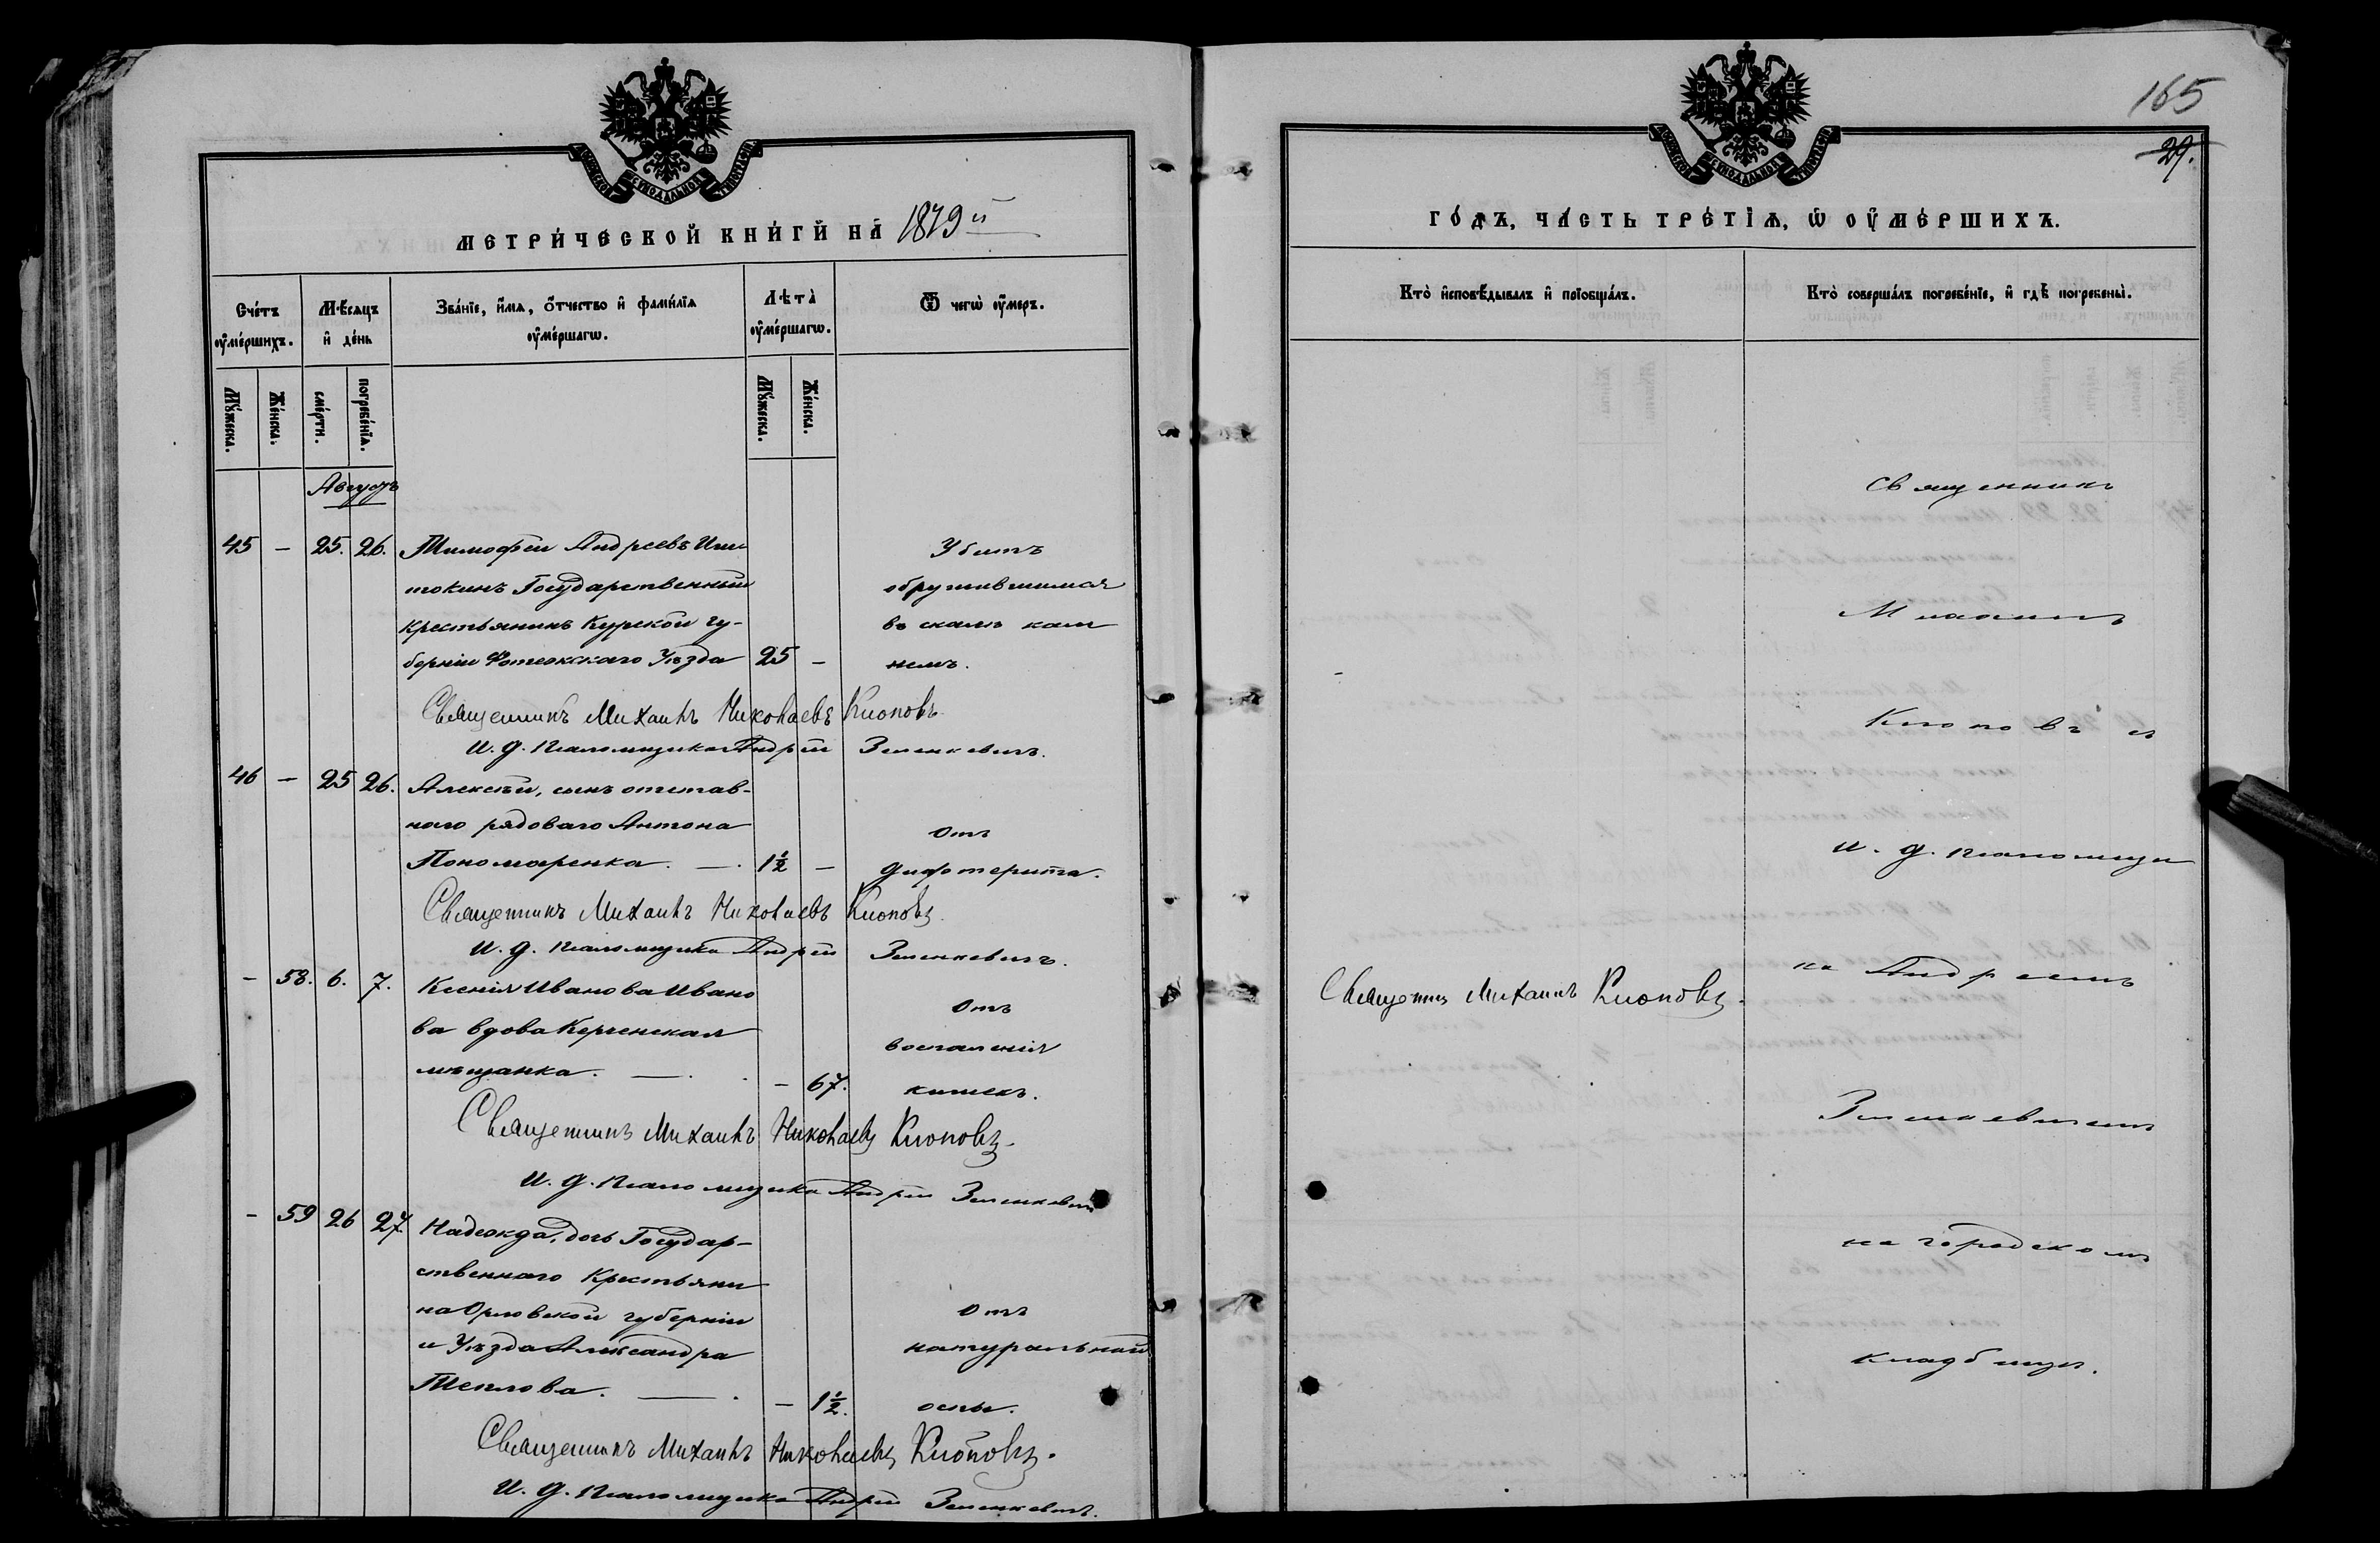 МЕТРИЧЕСКОЙ КНИГИ НА 1879й
Счетъ умершихъ.
Мѣсяцъ и день
Званіе, имя, отчество и фамилія умершагѡ.
Лѣта умершагѡ.
Ѿ чегѡ умеръ.
Мужеска.
Женска.
смерти.
погребенія.
Мужеска.
Женска.
Августъ
45 — 25. 26. Тимофей Андреевъ
Государственный
крестьянинъ Курской гу-
берніи Фатежскаго Уѣзда 25 —
Убитъ
обрушившимся
въ скалѣ кам
немъ.
Священникъ Михаилъ Николаевъ Клоповъ
И. д. псаломщика Андрей Зеленкевичъ.
46 — 25 26. Алексѣй, сынъ отстав-
наго рядоваго Антона
Пономаренка. — 1½ —
Отъ
дифтерита.
Священникъ Михаилъ Николаевъ Клоповъ
И. д. псаломщика Андрей Зеленкевичъ.
— 58. 6. 7. Ксенія Иванова Ивано
ва вдова Керченская
мѣщанка. — — 67.
Отъ
воспаленія
кишекъ.
Священникъ Михаилъ Николаевъ Клоповъ.
И. д. псаломщика Андрей Зеленкевичъ
— 59 26 27. Надежда, дочь Государ-
ственнаго Крестьяни
на Орловской губерніи
и Уѣзда Александра
Теплова. — — 1½.
Отъ
натуральной
оспы.
Священникъ Михаилъ Николаевъ Клоповъ.
И. д. псаломщика Андрей Зеленкевичъ.
165
29.
СУНОДАЛЬНОЙ ТИПОГРАФІИ
ГОДЪ, ЧАСТЬ ТРЕТІЯ, Ѡ УМЕРШИХЪ.
Кто исповѣдывалъ и пріобщалъ.
Кто совершалъ погребеніе, и гдѣ погребены.
Священникъ Михаилъ Клоповъ.
Священникъ
Михаилъ
Клоповъ и
и. д. псаломщи
ка Андреемъ
Зеленкевичемъ
на городскомъ
кладбищѣ.